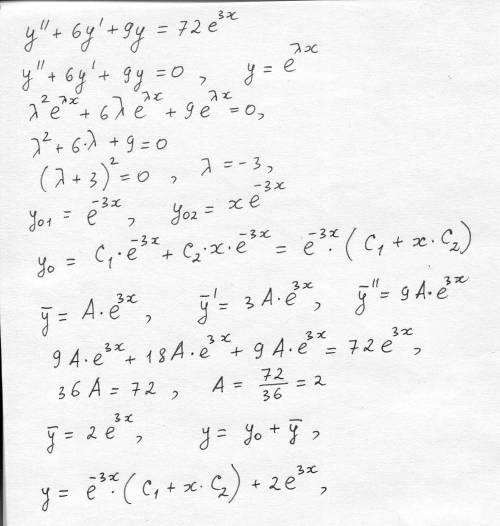 y'' + 6y' + 9y = 72e^{3x}
y'' + 6y' + 9y = 0 , y = e^{λx}
λ^2 e^{λx} + 6λ e^{λx} + 9e^{λx} = 0,
λ^2 + 6·λ + 9 = 0
(λ + 3)^2 = 0 , λ = -3,
y_{01} = e^{-3x} , y_{02} = x e^{-3x}
y_0 = C_1·e^{-3x} + C_2·x·e^{-3x} = e^{-3x}·(C_1 + x·C_2)
ȳ = A·e^{3x} , ȳ' = 3A·e^{3x} , ȳ'' = 9A·e^{3x}
9A·e^{3x} + 18A·e^{3x} + 9A·e^{3x} = 72e^{3x} ,
36A = 72 , A = \frac{72}{36} = 2
ȳ = 2e^{3x} , y = y_0 + ȳ ,
y = e^{-3x}·(C_1 + x·C_2) + 2e^{3x} ,